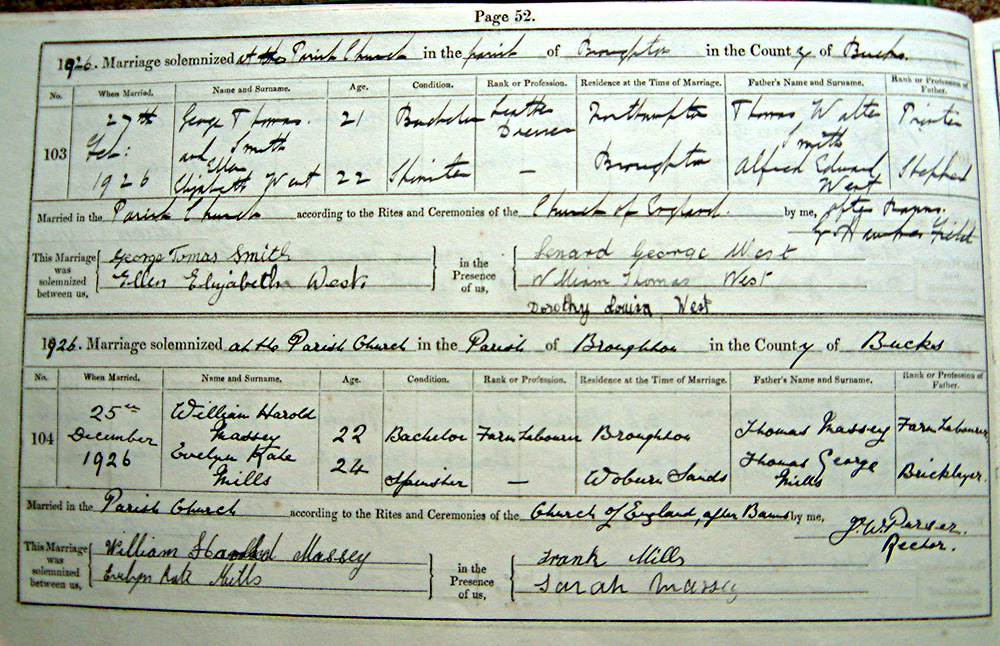 Page 52.
1926. Marriage solemnized at the Parish Church in the parish of Broughton in the County of Bucks.
No. When Married. Name and Surname. Age. Condition. Rank or Profession. Residence at the Time of Marriage. Father's Name and Surname. Rank or Profession of Father.
27th George Thomas 21 Bachelor Leather Northampton Thomas Walter Printer
103 Feb: and Smith Dresser Smith
1926 Ellen Elizabeth West 22 Spinster — Broughton Alfred Edward West
Married in the Parish Church according to the Rites and Ceremonies of the Church of England. by me, after Banns.
This Marriage was solemnized between us, George Tomas Smith in the Presence of us, Lenard George West
Ellen Elizabeth West William Thomas West
Dorothy Louisa West
1926. Marriage solemnized at the Parish Church in the Parish of Broughton in the County of Bucks
No. When Married. Name and Surname. Age. Condition. Rank or Profession. Residence at the Time of Marriage. Father's Name and Surname. Rank or Profession of Father.
25th William Harold
104 December Massey 22 Bachelor Farm Labourer Broughton Thomas Massey Farm Labourer
1926 Evelyn Kate 24 Thomas George
Mills Spinster — Woburn Sands Mills Bricklayer
Married in the Parish Church according to the Rites and Ceremonies of the Church of England, after Banns by me, J.W. Parser.
Rector.
This Marriage was solemnized between us, William Harold Massey in the Presence of us, Frank Mills
Evelyn Kate Mills Sarah Massey